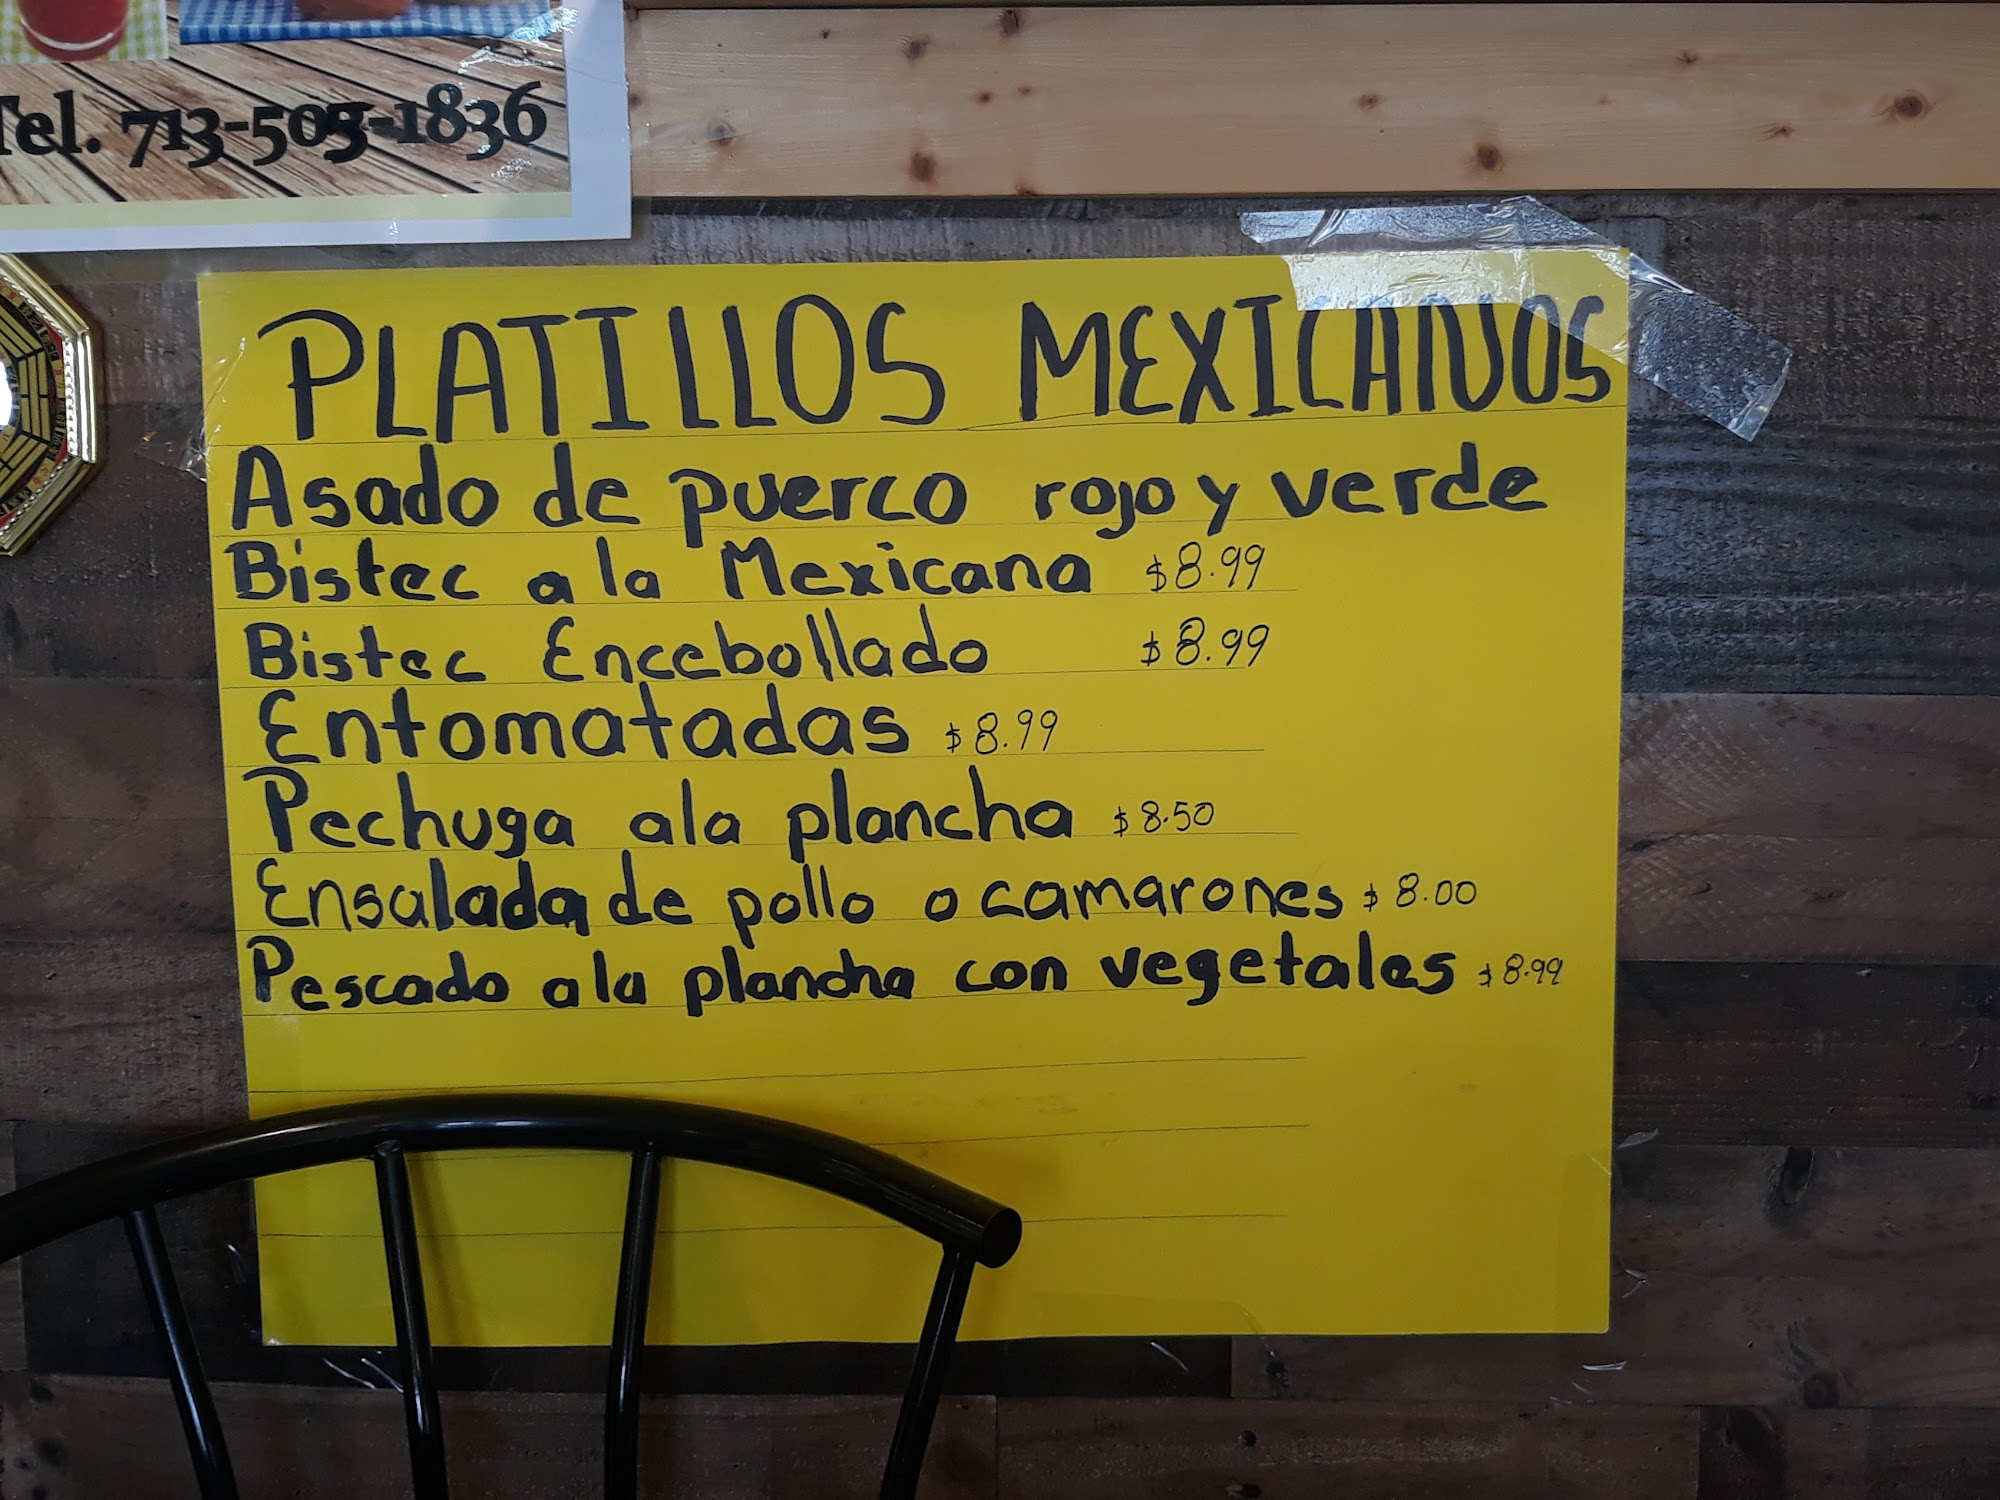 Tel. 713-505-1836
PLATILLOS MEXICANOS
Asado de puerco rojo y verde
Bistec a la Mexicana $8.99
Bistec Encebollado $8.99
Entomatadas $8.99
Pechuga ala plancha $8.50
Ensalada de pollo o camarones $8.00
Pescado ala plancha con vegetales $8.99